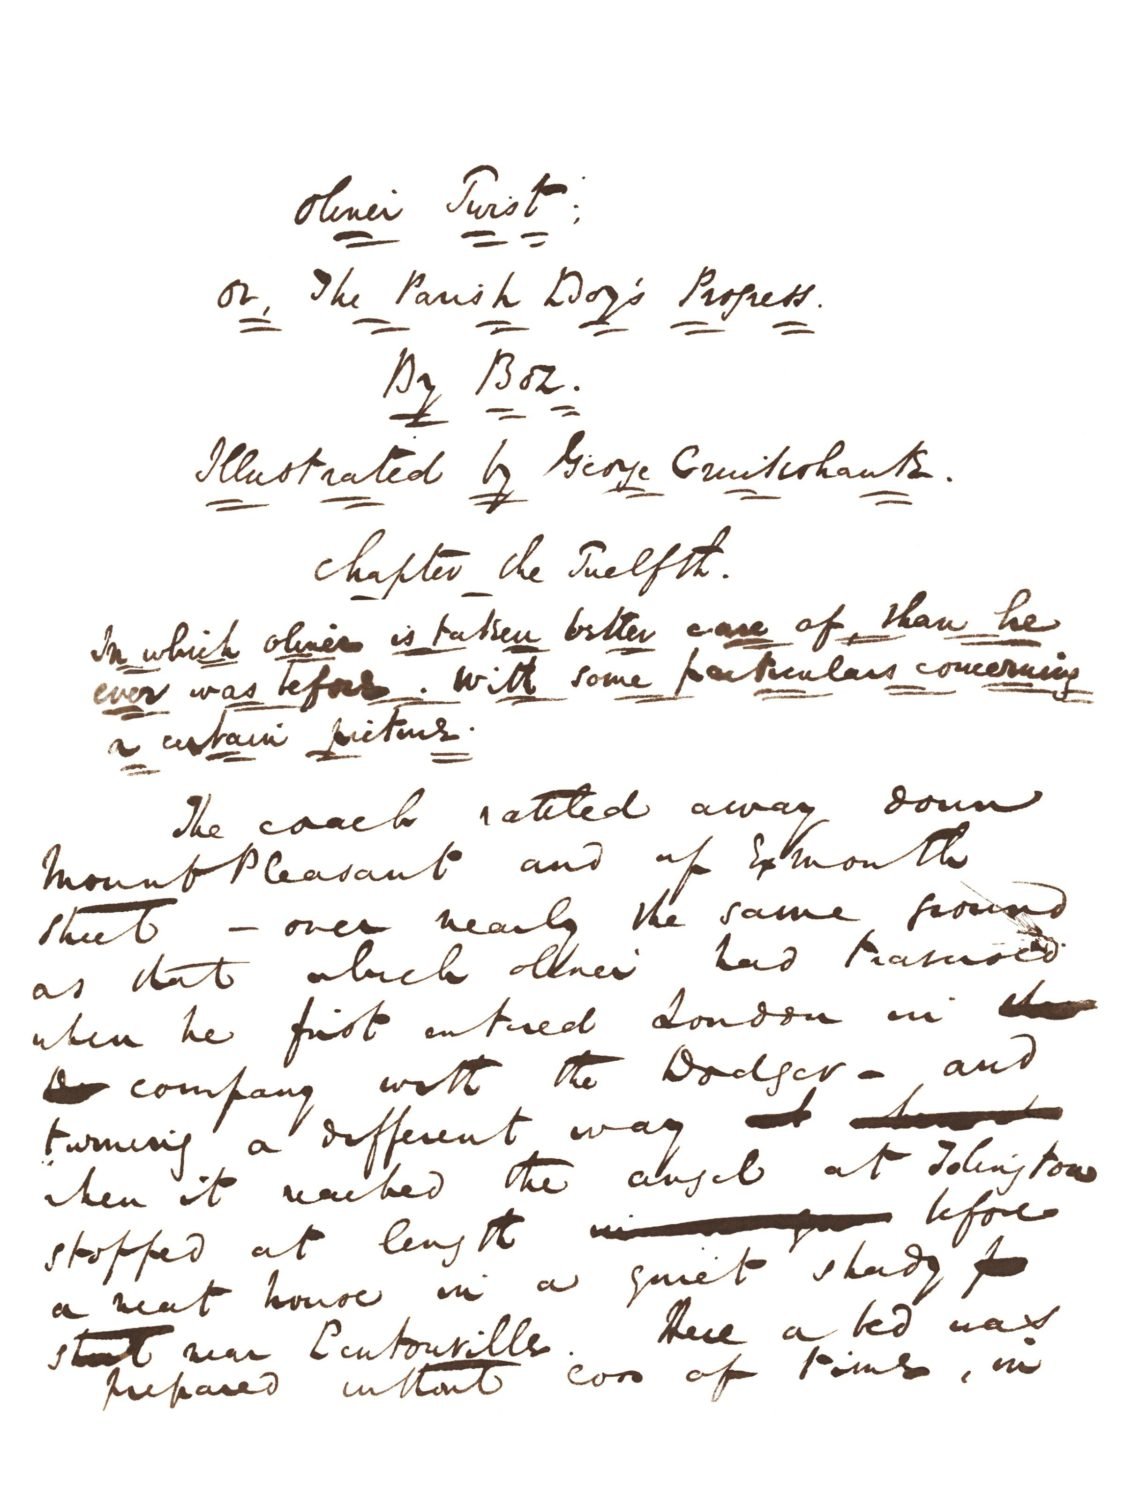 Oliver Twist;
or, The Parish Boy's Progress.
By Boz.
Illustrated by George Cruikshank.
Chapter the Twelfth.
In which Oliver is taken better care of, than he
ever was before. With some particulars concerning
a certain picture.
The coach rattled away down
Mount Pleasant and up Exmouth
Street – over nearly the same ground
as that which Oliver had traversed
when he first entered London in
company with the Dodger – and
turning a different way
when it reached the Angel at Islington
stopped at length before
a neat house in a quiet shady
street near Pentonville. Here a bed was
prepared without loss of time, in